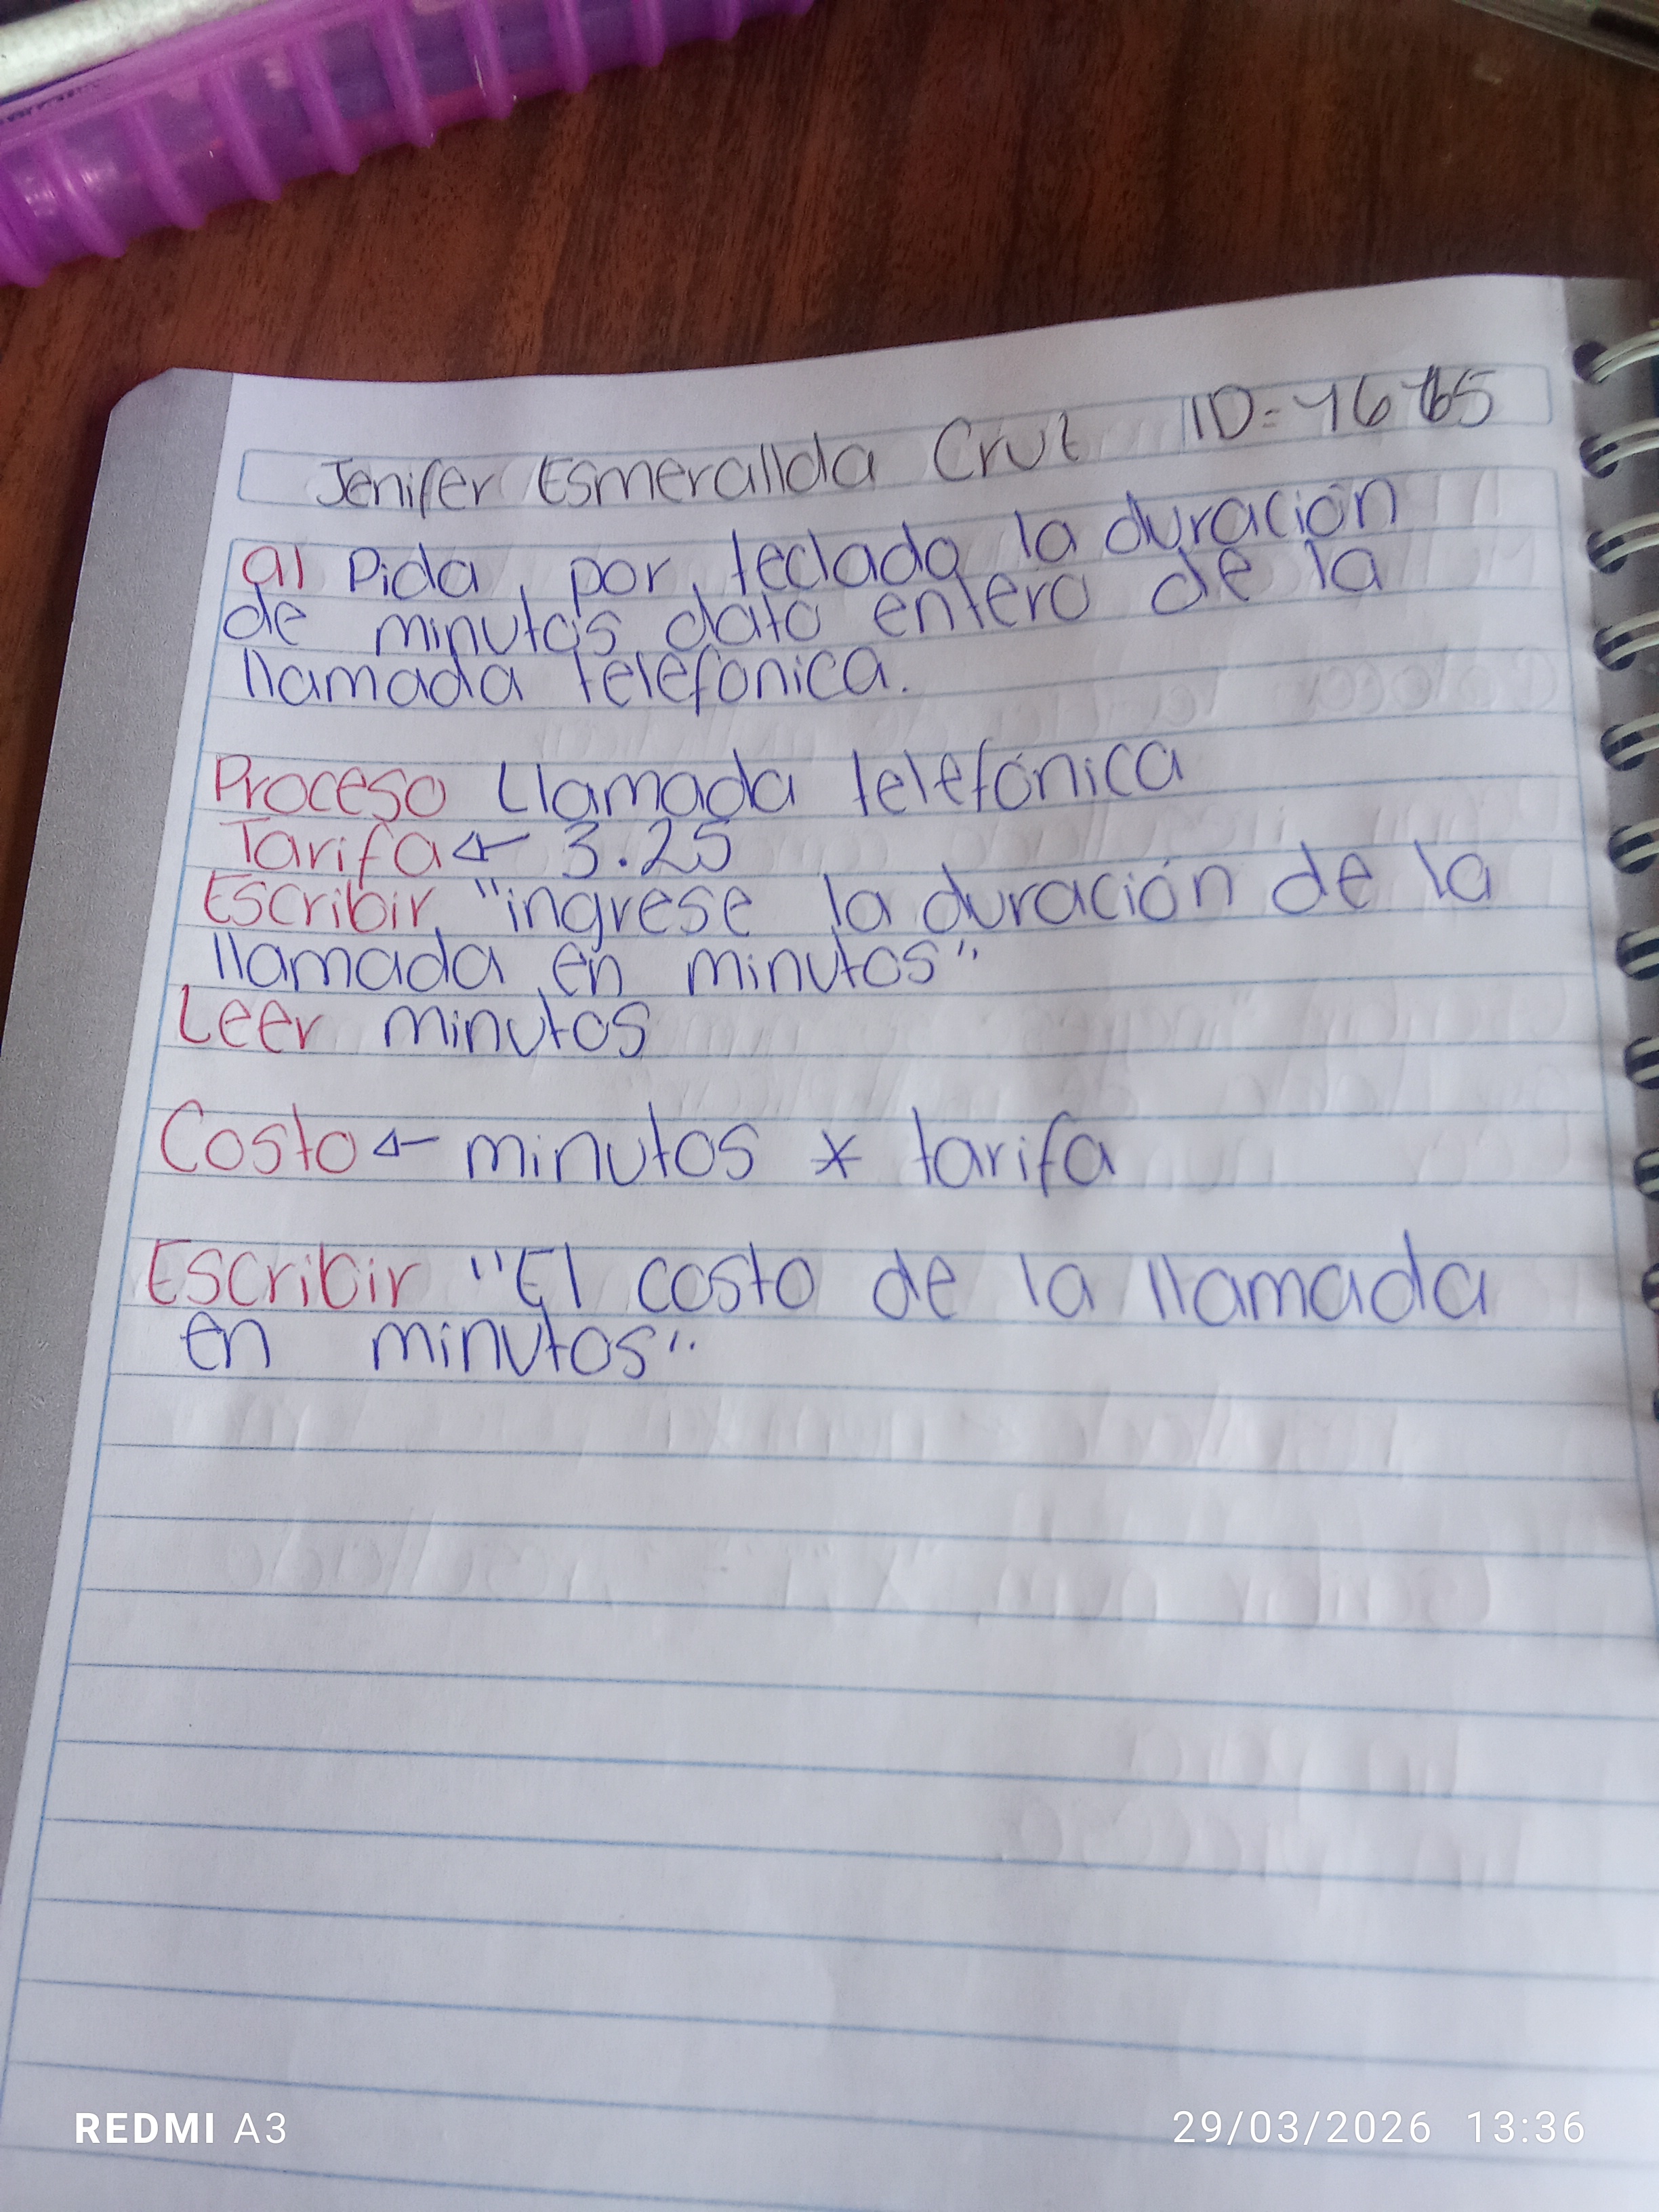 Jenifer Esmerallda Cruz ID=
a) Pida por teclado la duración
de minutos dato entero de la
llamada telefonica.
Proceso Llamada telefónica
Tarifa ← 3.25
Escribir "ingrese la duración de la
llamada en minutos"
Leer minutos
Costo ← minutos * tarifa
Escribir "El costo de la llamada
en minutos"
REDMI A3
29/03/2026 13:36